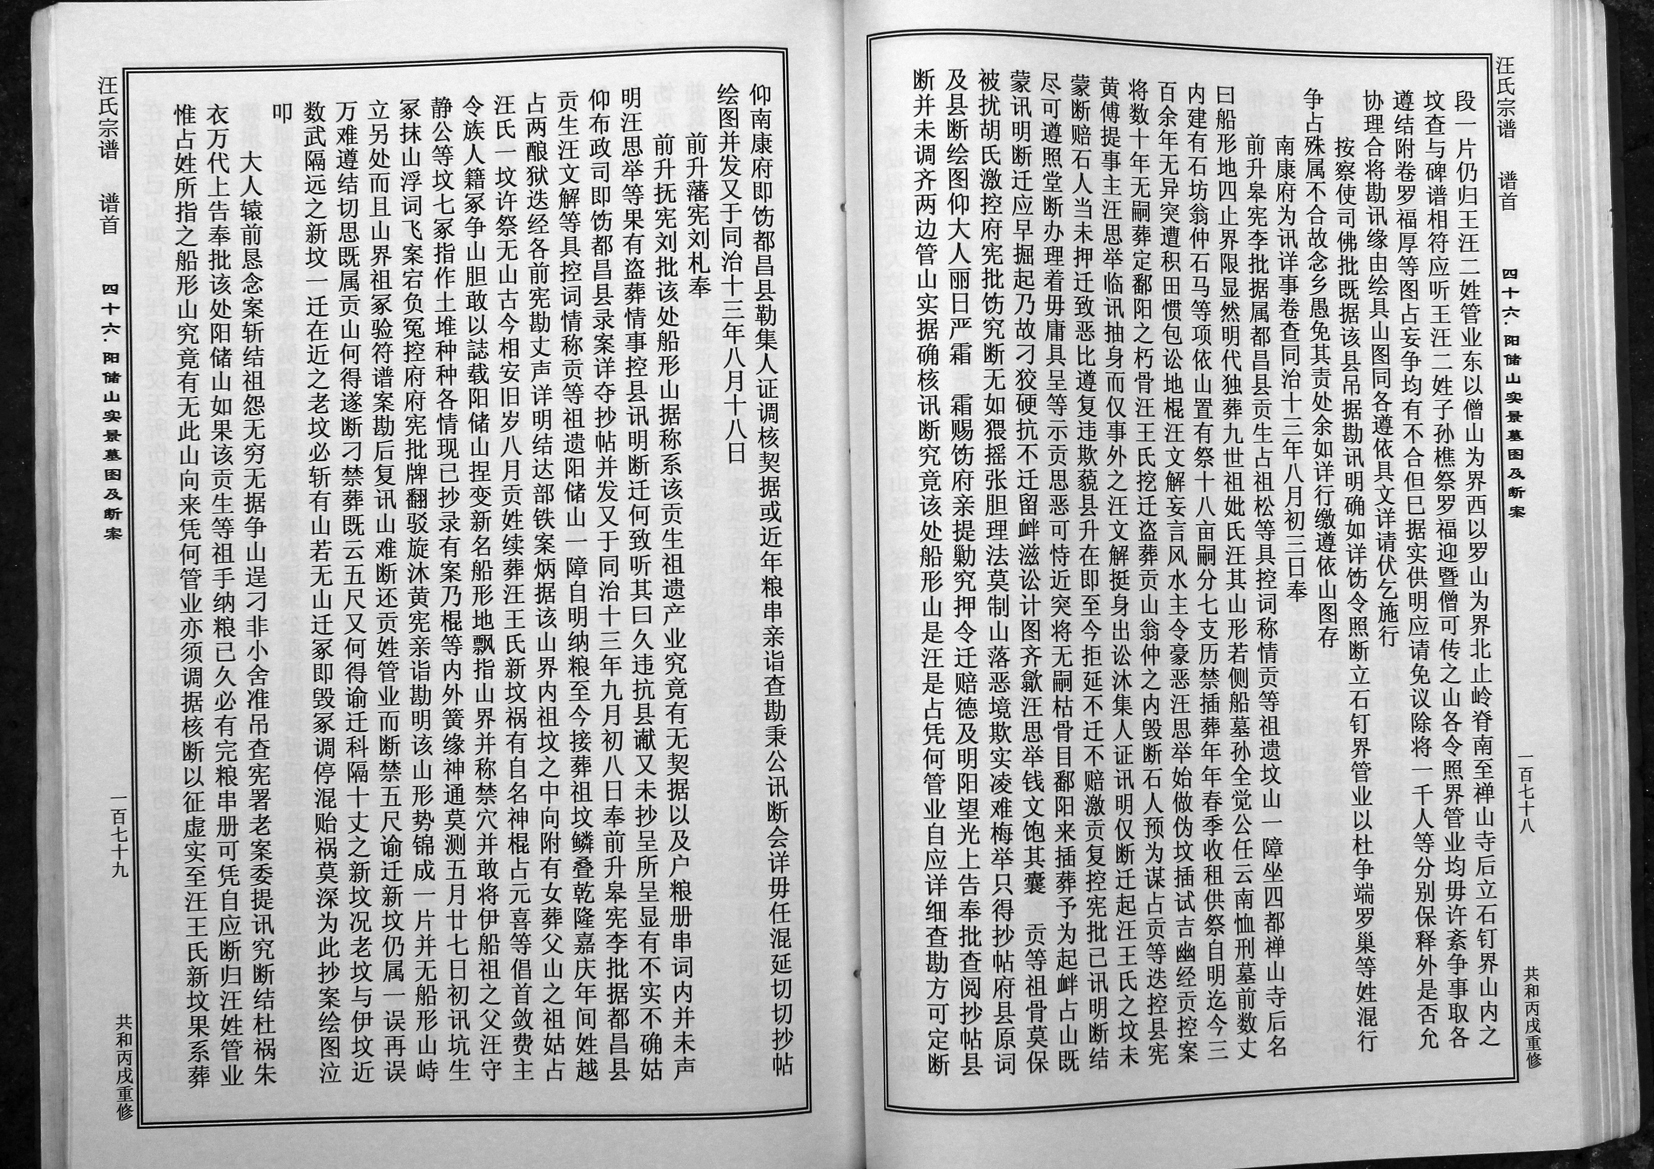 汪氏宗谱 谱首 四十六·阳储山实景墓图及断案 一百七十八 共和丙戌重修
段一片仍归王汪二姓管业东以僧山为界西以罗山为界北止岭脊南至禅山寺后立石钉界山内之
坟查与碑谱相符应听王汪二姓子孙樵祭罗福迎暨僧可传之山各令照界管业均毋许紊争事取各
遵结附卷罗福厚等图占妄争均有不合但已据实供明应请免议除将一千人等分别保释外是否允
协理合将勘讯缘由绘具山图同各遵依具文详请伏乞施行
按察使司佛批既据该县吊据勘讯明确如详饬令照断立石钉界管业以杜争端罗巢等姓混行
争占殊属不合故念乡愚免其责处余如详行缴遵依山图存
南康府为讯详事卷查同治十三年八月初三日奉
前升皋宪李批据属都昌县贡生占祖松等具控词称情贡等祖遗坟山一障坐四都禅山寺后名
曰船形地四止界限显然明代独葬九世祖妣氏汪其山形若侧船墓孙全觉公任云南恤刑墓前数丈
内建有石坊翁仲石马等项依山置有祭十八亩嗣分七支历禁插葬年年春季收租供祭自明迄今三
百余年无异突遭积田惯包讼地棍汪文解妄言风水主令豪恶汪思举始做伪坟插试吉幽经贡控案
将数十年无嗣葬定鄱阳之朽骨汪王氏挖迁盗葬贡山翁仲之内毁断石人预为谋占贡等迭控县宪
黄傅提事主汪思举临讯抽身而仅事外之汪文解挺身出讼沐集人证讯明仅断迁起汪王氏之坟未
蒙断赔石人当未押迁致恶比遵复违欺藐县升在即至今拒延不迁不赔激贡复控宪批已讯明断结
尽可遵照堂断办理着毋庸具呈等示贡思恶可恃近突将无嗣枯骨目鄱阳来插葬予为起衅占山既
蒙讯明断迁应早掘起乃故刁狡硬抗不迁留衅滋讼计图齐歙汪思举钱文饱其囊 贡等祖骨莫保
被扰胡氏激控府宪批饬究断无如猥摇张胆理法莫制山落恶境欺实凌难梅举只得抄帖府县原词
及县断绘图仰大人丽日严霜 霜赐饬府亲提勦究押令迁赔德及明阳望光上告奉批查阅抄帖县
断并未调齐两边管山实据确核讯断究竟该处船形山是汪是占凭何管业自应详细查勘方可定断
仰南康府即饬都昌县勒集人证调核契据或近年粮串亲诣查勘秉公讯断会详毋任混延切切抄帖
绘图并发又于同治十三年八月十八日
前升藩宪刘札奉
前升抚宪刘批该处船形山据称系该贡生祖遗产业究竟有无契据以及户粮册串词内并未声
明汪思举等果有盗葬情事控县讯明断迁何致听其曰久违抗县谳又未抄呈所呈显有不实不确姑
仰布政司即饬都昌县录案详夺抄帖并发又于同治十三年九月初八日奉前升皋宪李批据都昌县
贡生汪文解等具控词情称贡等祖遗阳储山一障自明纳粮至今接葬祖坟鳞叠乾隆嘉庆年间姓越
占两酿狱迭经各前宪勘丈声详明结达部铁案炳据该山界内祖坟之中向附有女葬父山之祖姑占
汪氏一坟许祭无山古今相安旧岁八月贡姓续葬汪王氏新坟祸有自名神棍占元喜等倡首敛费主
令族人籍冢争山胆敢以誌载阳储山捏变新名船形地飘指山界并称禁穴并敢将伊船祖之父汪守
静公等坟七冢指作土堆种种各情现已抄录有案乃棍等内外簧缘神通莫测五月廿七日初讯坑生
冢抹山浮词飞案宕负冤控府府宪批牌翻驳旋沐黄宪亲诣勘明该山形势锦成一片并无船形山峙
立另处而且山界祖冢验符谱案勘后复讯山难断还贡姓管业而断禁五尺谕迁新坟仍属一误再误
万难遵结切思既属贡山何得遂断刁禁葬既云五尺又何得谕迁科隔十丈之新坟况老坟与伊坟近
数武隔远之新坟一迁在近之老坟必斩有山若无山迁冢即毁冢调停混贻祸莫深为此抄案绘图泣
叩
大人辕前恳念案斩结祖怨无穷无据争山逞刁非小舍准吊查宪署老案委提讯究断结杜祸朱
衣万代上告奉批该处阳储山如果该贡生等祖手纳粮已久必有完粮串册可凭自应断归汪姓管业
惟占姓所指之船形山究竟有无此山向来凭何管业亦须调据核断以征虚实至汪王氏新坟果系葬
汪氏宗谱 谱首 四十六·阳储山实景墓图及断案 一百七十九 共和丙戌重修